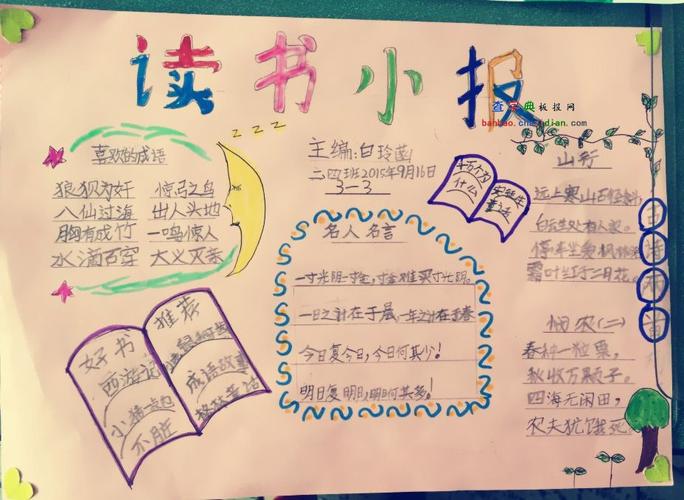 读书小报
查字典板报网
banbao.chazidian.com
喜欢的成语
狼狈为奸 惊弓之鸟
八仙过海 出人头地
胸有成竹 一鸣惊人
水滴石穿 大义灭亲
主编:白玲菡
二四班2015年9月16日
3-3
十万个为
什么
安徒生
童话
名人名言
一寸光阴一寸金,寸金难买寸光阴。
一日之计在于晨,一年之计在于春
今日复今日,今日何其少!
明日复明日,明日何其多!
古诗两首
山行
远上寒山石径斜,
白云生处有人家。
停车坐爱枫林晚
霜叶红于二月花。
悯农(二)
春种一粒粟,
秋收万颗子。
四海无闲田,
农夫犹饿死。
好书
西游记
推荐
成语故事
格林童话